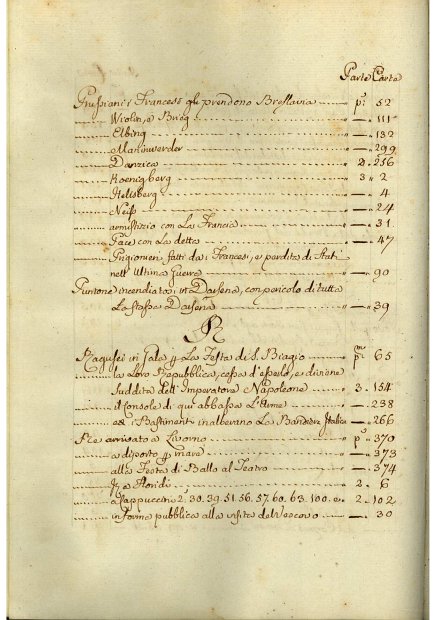 Parte Carta
Prussiani i Francesi gli prendono Breslavia p.ª 52
Wrolin, e Brieg — 111
Elbing — 132
Marinwerder — 299
Danzica 2. 256
Koenigberg 3. 2
Heilsberg — 4.
Neiß — 24
armistizio con La Francia — 31.
Pace con La detta — 47
Prigionieri fatti da i Francesi, e perdita di Stati
nell' Ultima Guerra — 90
Puntone incendiato in Darsena, con pericolo di tutta
La stessa Darsena — 39
R
Ragusei in Gala p La Festa di S. Biagio p.ª 65
la Loro Repubblica, cessa d'essere, e diviene
suddita dell' Imperatore Napoleone 3. 154
il Console di qui abbassa L'Arme — 238
ed i Bastimenti inalberano La Bandiera Italica — 266
Re arrivato a Livorno p.ª 370
a diporto p mare — 373
alla Festa di Ballo al Teatro — 374
a Floridi 2. 6
a Cappuccini 2. 30. 39. 51. 56. 57. 60. 63. 100. e 2. 102
in forma pubblica alla visita del Vescovo — 30